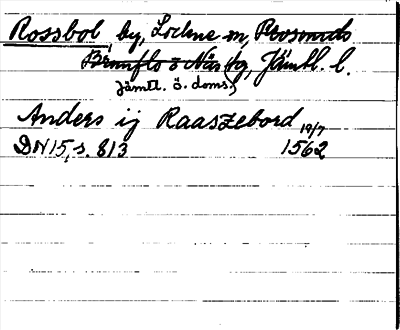 Rossbol by, Lockne sn, Revsunds
Brunflo o Näs tg, Jämtl. l.
Jämtl. ö. doms.
Anders ij Raaszebord 19/7
DN 15, s. 813 1562